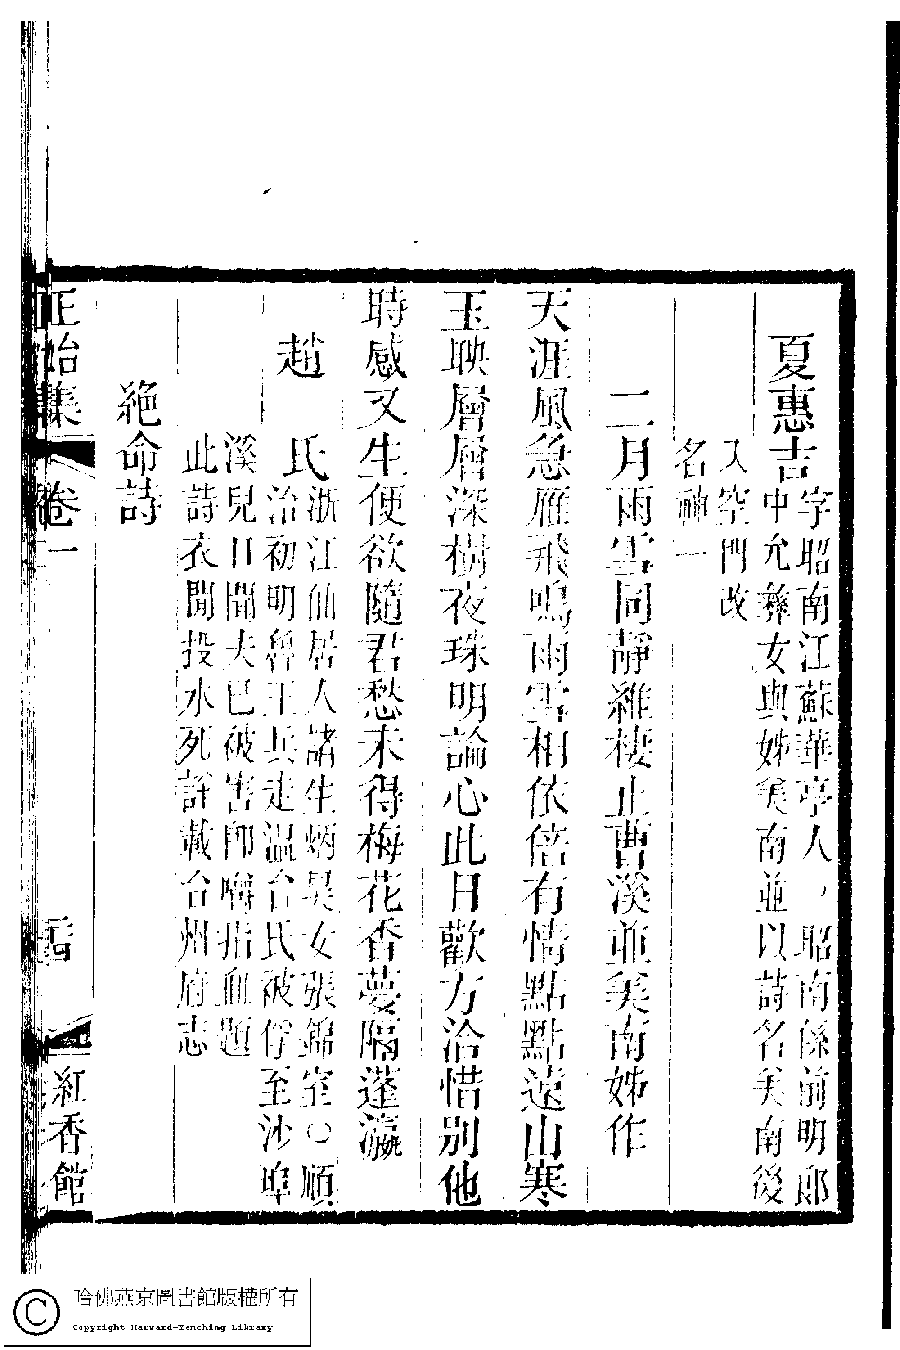 夏惠吉
字昭南江蘇華亭人○昭南係前明郎
中允彝女與姊美南並以詩名美南後
入空門改
名神一
二月雨雪同靜維棲止曹溪並美南姊作
天涯風急雁飛鳴雨雪相依倍有情點點遠山寒
玉映層層深樹夜珠明論心此日歡方洽惜別他
時感又生便欲隨君愁未得梅花香夢隔蓬瀛
趙氏
浙江仙居人諸生炳昊女張錦室○順
治初明魯王兵走温台氏被俘至沙埠
溪兒日聞夫已被害即嚙指血題
此詩衣間投水死詳載台州府志
絕命詩
正始集
卷一
紅香館
哈佛燕京圖書館版權所有
Copyright Harvard-Yenching Library